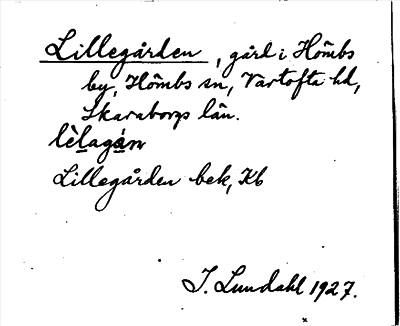 Lillegården, gård i Hömbs
by, Hömbs sn, Vartofta hd,
Skaraborgs län.
lèlagán
Lillegården bek, Kb
I. Lundahl 1927.